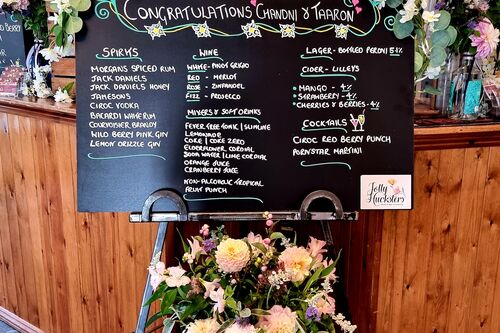 CONGRATULATIONS CHANDNI & TAARON
SPIRITS
MORGANS SPICED RUM
JACK DANIELS
JACK DANIELS HONEY
JAMESON
CIROC VODKA
BACARDI WHITE RUM
COURVOISIER BRANDY
WILD BERRY PINK GIN
LEMON DRIZZLE GIN
WINE
WHITE - PINOT GRIGIO
RED - MERLOT
ROSE - ZINFANDEL
FIZZ - PROSECCO
MIXERS & SOFT DRINKS
FEVER TREE TONIC / SLIMLINE
LEMONADE
COKE / COKE ZERO
ELDERFLOWER CORDIAL
SODA WATER / LIME CORDIAL
ORANGE JUICE
CRANBERRY JUICE
NON-ALCOHOLIC TROPICAL
FRUIT PUNCH
LAGER - BOTTLED PERONI 5.1%
CIDER - LILLEYS
• MANGO - 4%
• STRAWBERRY - 4%
• CHERRIES & BERRIES - 4%
COCKTAILS
CIROC RED BERRY PUNCH
PORNSTAR MARTINI
Jolly
Hucksters